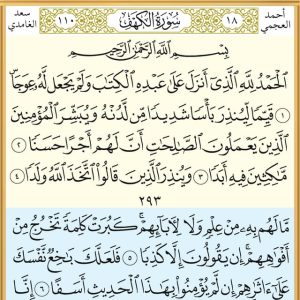 سعد الغامدي
١١٠
سُورَةُ الكَهْفِ
١٨
أحمد العجمي
بِسْمِ اللَّهِ الرَّحْمَٰنِ الرَّحِيمِ
الْحَمْدُ لِلَّهِ الَّذِي أَنزَلَ عَلَىٰ عَبْدِهِ الْكِتَابَ وَلَمْ يَجْعَل لَّهُ عِوَجًا
١ قَيِّمًا لِّيُنذِرَ بَأْسًا شَدِيدًا مِّن لَّدُنْهُ وَيُبَشِّرَ الْمُؤْمِنِينَ
الَّذِينَ يَعْمَلُونَ الصَّالِحَاتِ أَنَّ لَهُمْ أَجْرًا حَسَنًا ٢
مَّاكِثِينَ فِيهِ أَبَدًا ٣ وَيُنذِرَ الَّذِينَ قَالُوا اتَّخَذَ اللَّهُ وَلَدًا ٤
٢٩٣
مَّا لَهُم بِهِ مِنْ عِلْمٍ وَلَا لِآبَائِهِمْ كَبُرَتْ كَلِمَةً تَخْرُجُ مِنْ
أَفْوَاهِهِمْ إِن يَقُولُونَ إِلَّا كَذِبًا ٥ فَلَعَلَّكَ بَاخِعٌ نَّفْسَكَ
عَلَىٰ آثَارِهِمْ إِن لَّمْ يُؤْمِنُوا بِهَٰذَا الْحَدِيثِ أَسَفًا ٦ إِنَّا